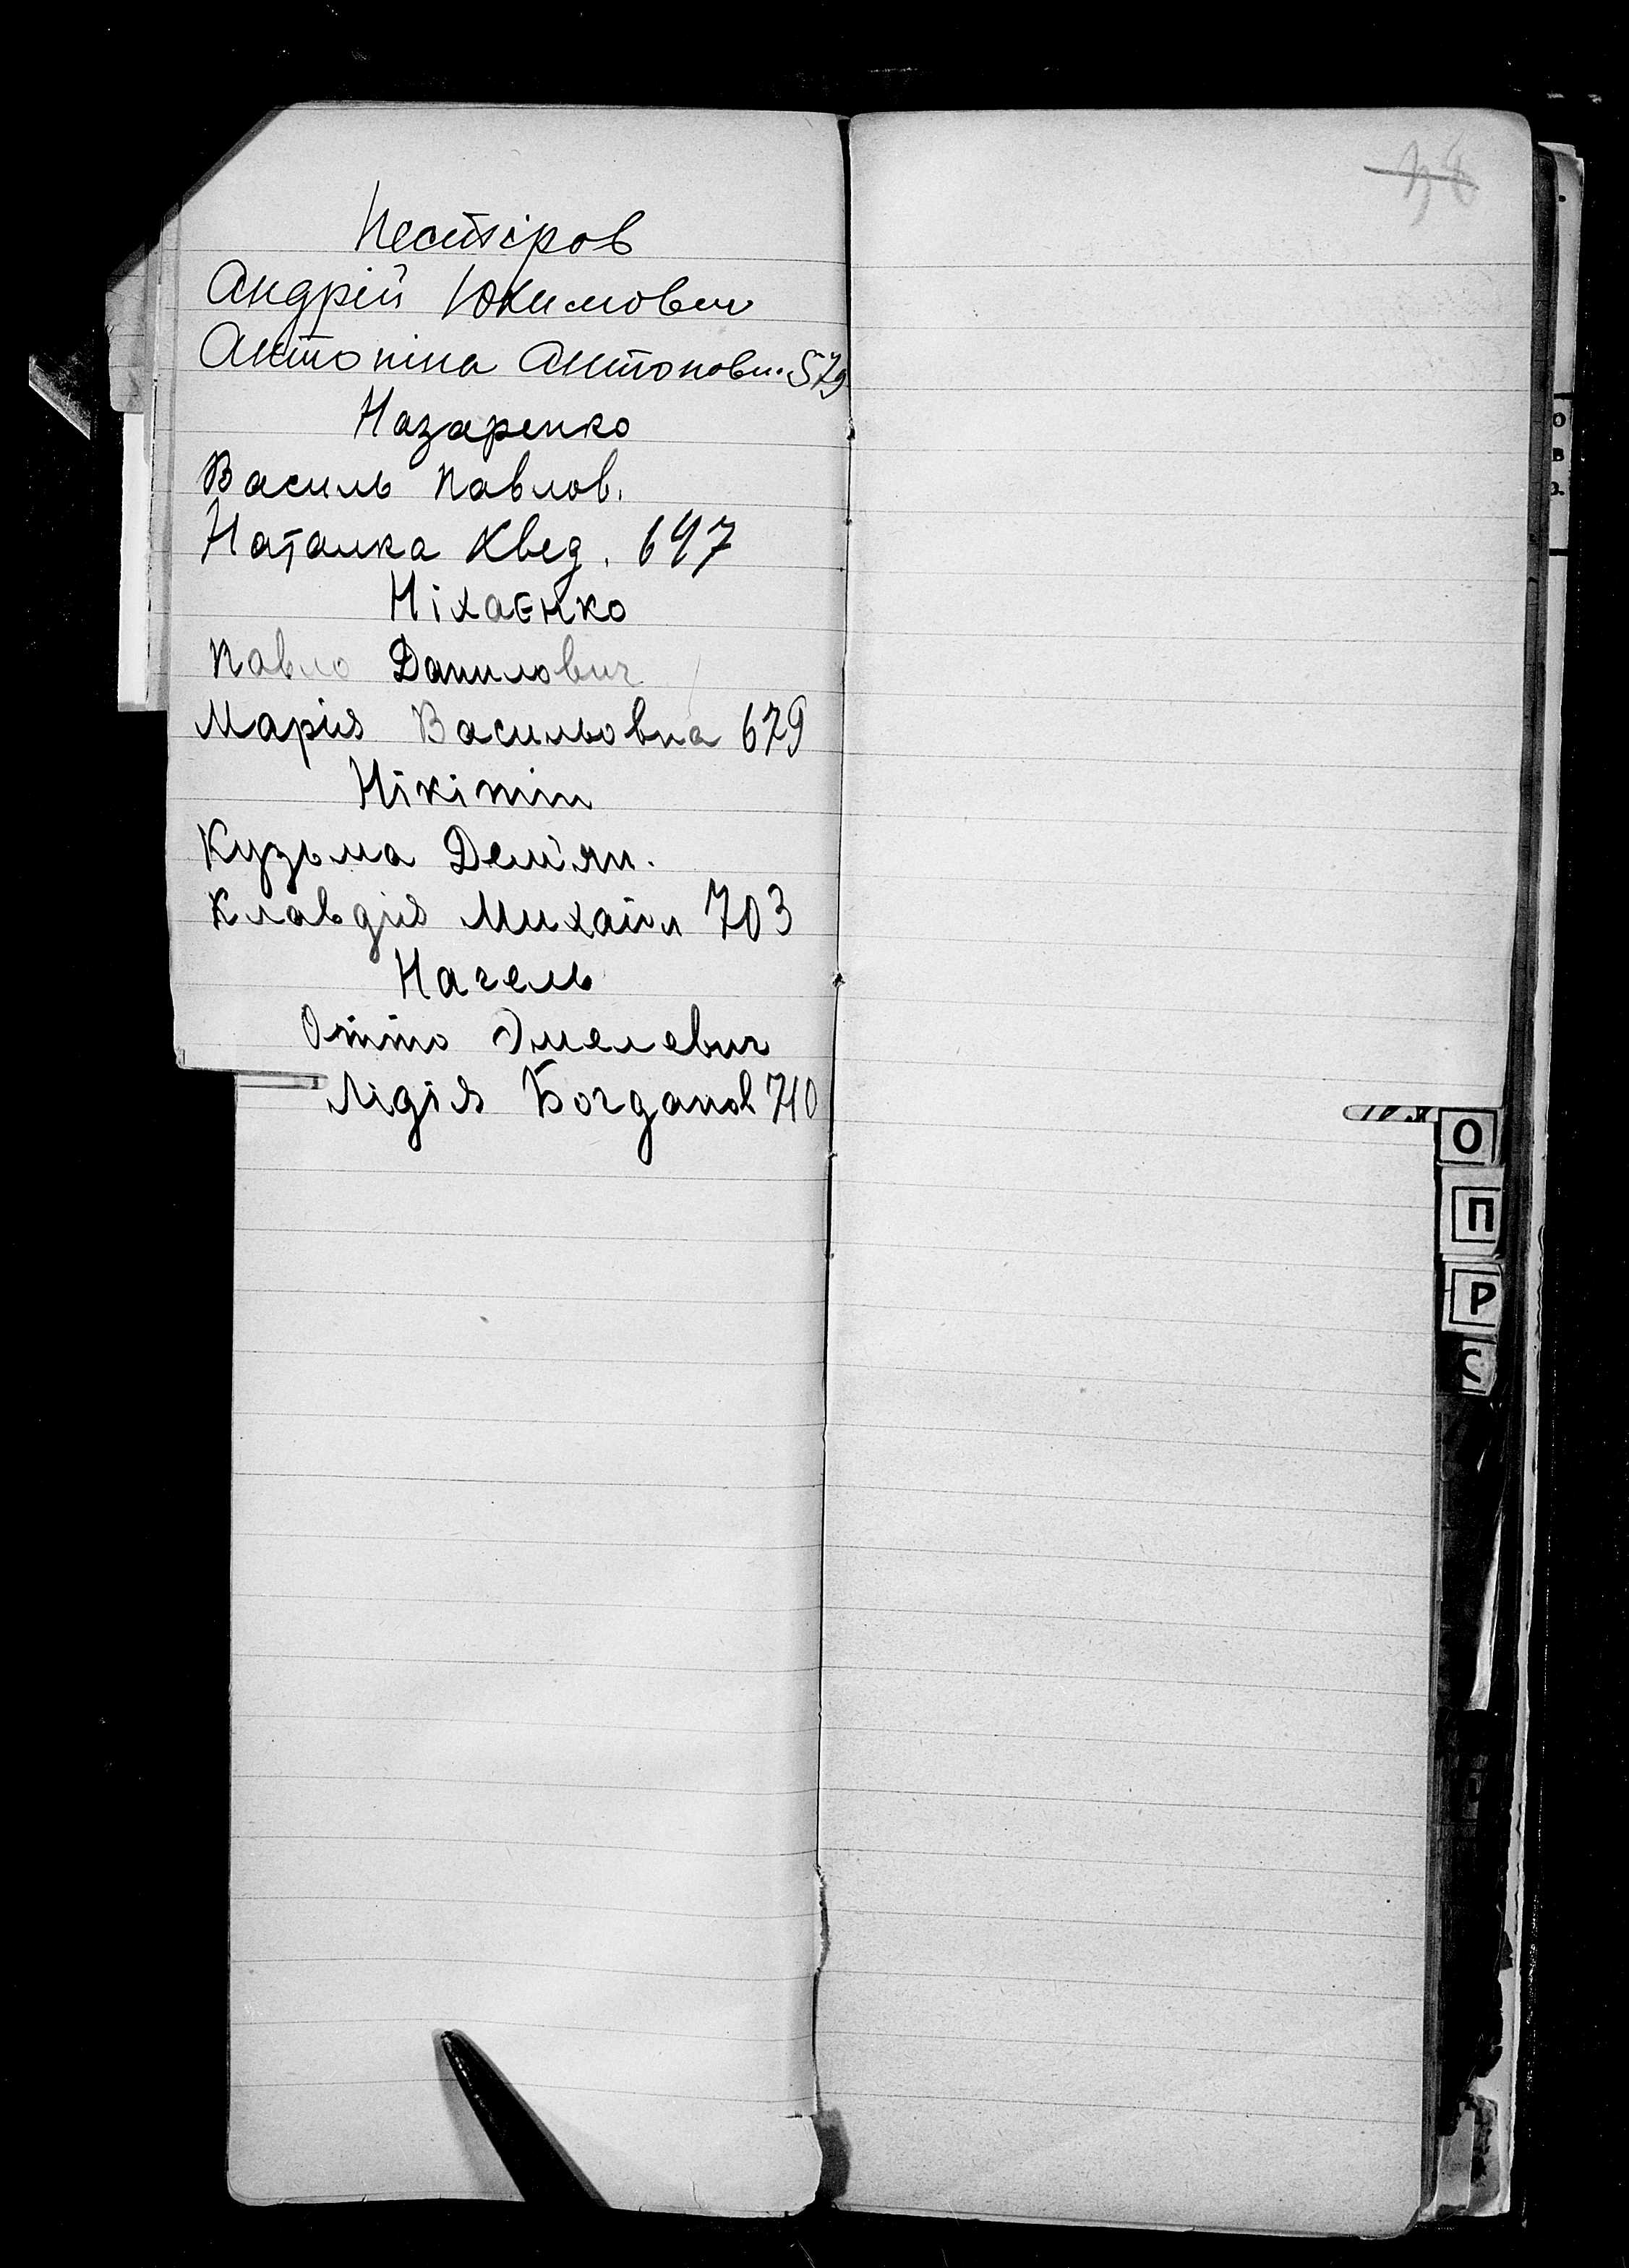 Нестіров
Андрій Юхимович
Антоніна Антоновн. 579
Назаренко
Василь Павлов.
Наталка Квед. 697
Ніхаєнко
Павло Данилович
Марія Васильовна 679
Нікітін
Кузьма Дем'ян.
Клавдія Михайл 703
Нагель
Отто Эмелевич
Лідія Богданов 710
О
П
Р
С